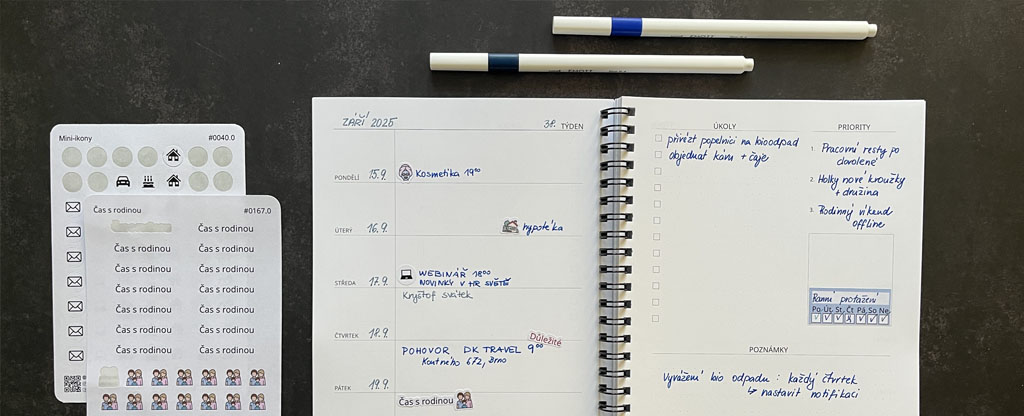 Mini-ikony
#0040.0
Čas s rodinou
#0167.0
Čas s rodinou
Čas s rodinou
Čas s rodinou
Čas s rodinou
Čas s rodinou
Čas s rodinou
Čas s rodinou
Čas s rodinou
Čas s rodinou
Čas s rodinou
Čas s rodinou
Čas s rodinou
Čas s rodinou
ZÁŘÍ 2025
38. TÝDEN
PONDĚLÍ 15.9. Kosmetika 19⁰⁰
ÚTERÝ 16.9. hypotéka
STŘEDA 17.9. WEBINÁŘ 18⁰⁰
NOVINKY V HR SVĚTĚ
Kryštof svátek
ČTVRTEK 18.9.
Důležité
POHOVOR DK TRAVEL 9⁰⁰
672, Brno
PÁTEK 19.9.
Čas s rodinou
ÚKOLY
přivézt popelnici na bioodpad
objednat kávu + čaje
PRIORITY
1. Pracovní resty po
dovolené
2. Holky nové kroužky
+ družina
3. Rodinný víkend
offline
Ranní protažení
Po Út St Čt Pá So Ne
POZNÁMKY
Vyvážení bio odpadu : každý čtvrtek
↳ nastavit notifikaci